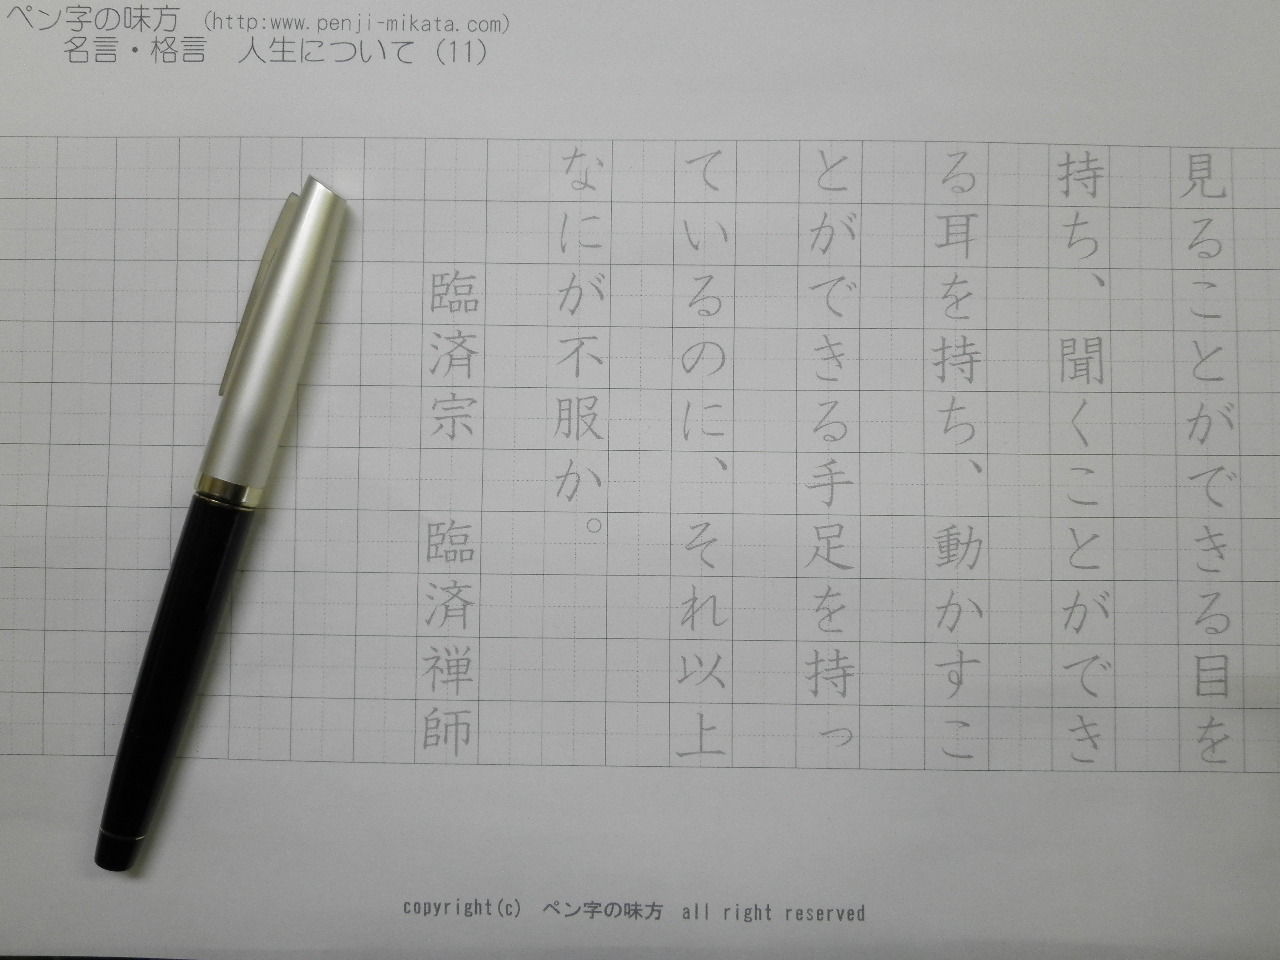 ペン字の味方 （http:www.penji-mikata.com）
名言・格言　人生について（11）
見ることができる目を
持ち、聞くことができ
る耳を持ち、動かすこ
とができる手足を持っ
ているのに、それ以上
なにが不服か。
臨済宗　臨済禅師
copyright(c)　ペン字の味方　all right reserved